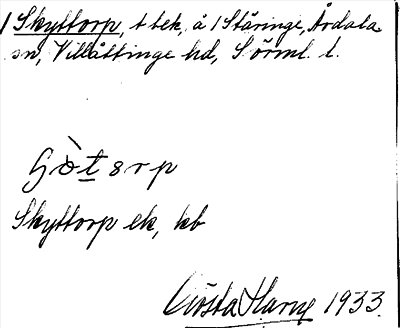 1 Skyttorp, t tek, å 1 Stäringe, Årdala
sn, Villåttinge hd, Sörml. l.
ʃòtsrp
Skyttorp ek, kb
Gösta Harne 1933.